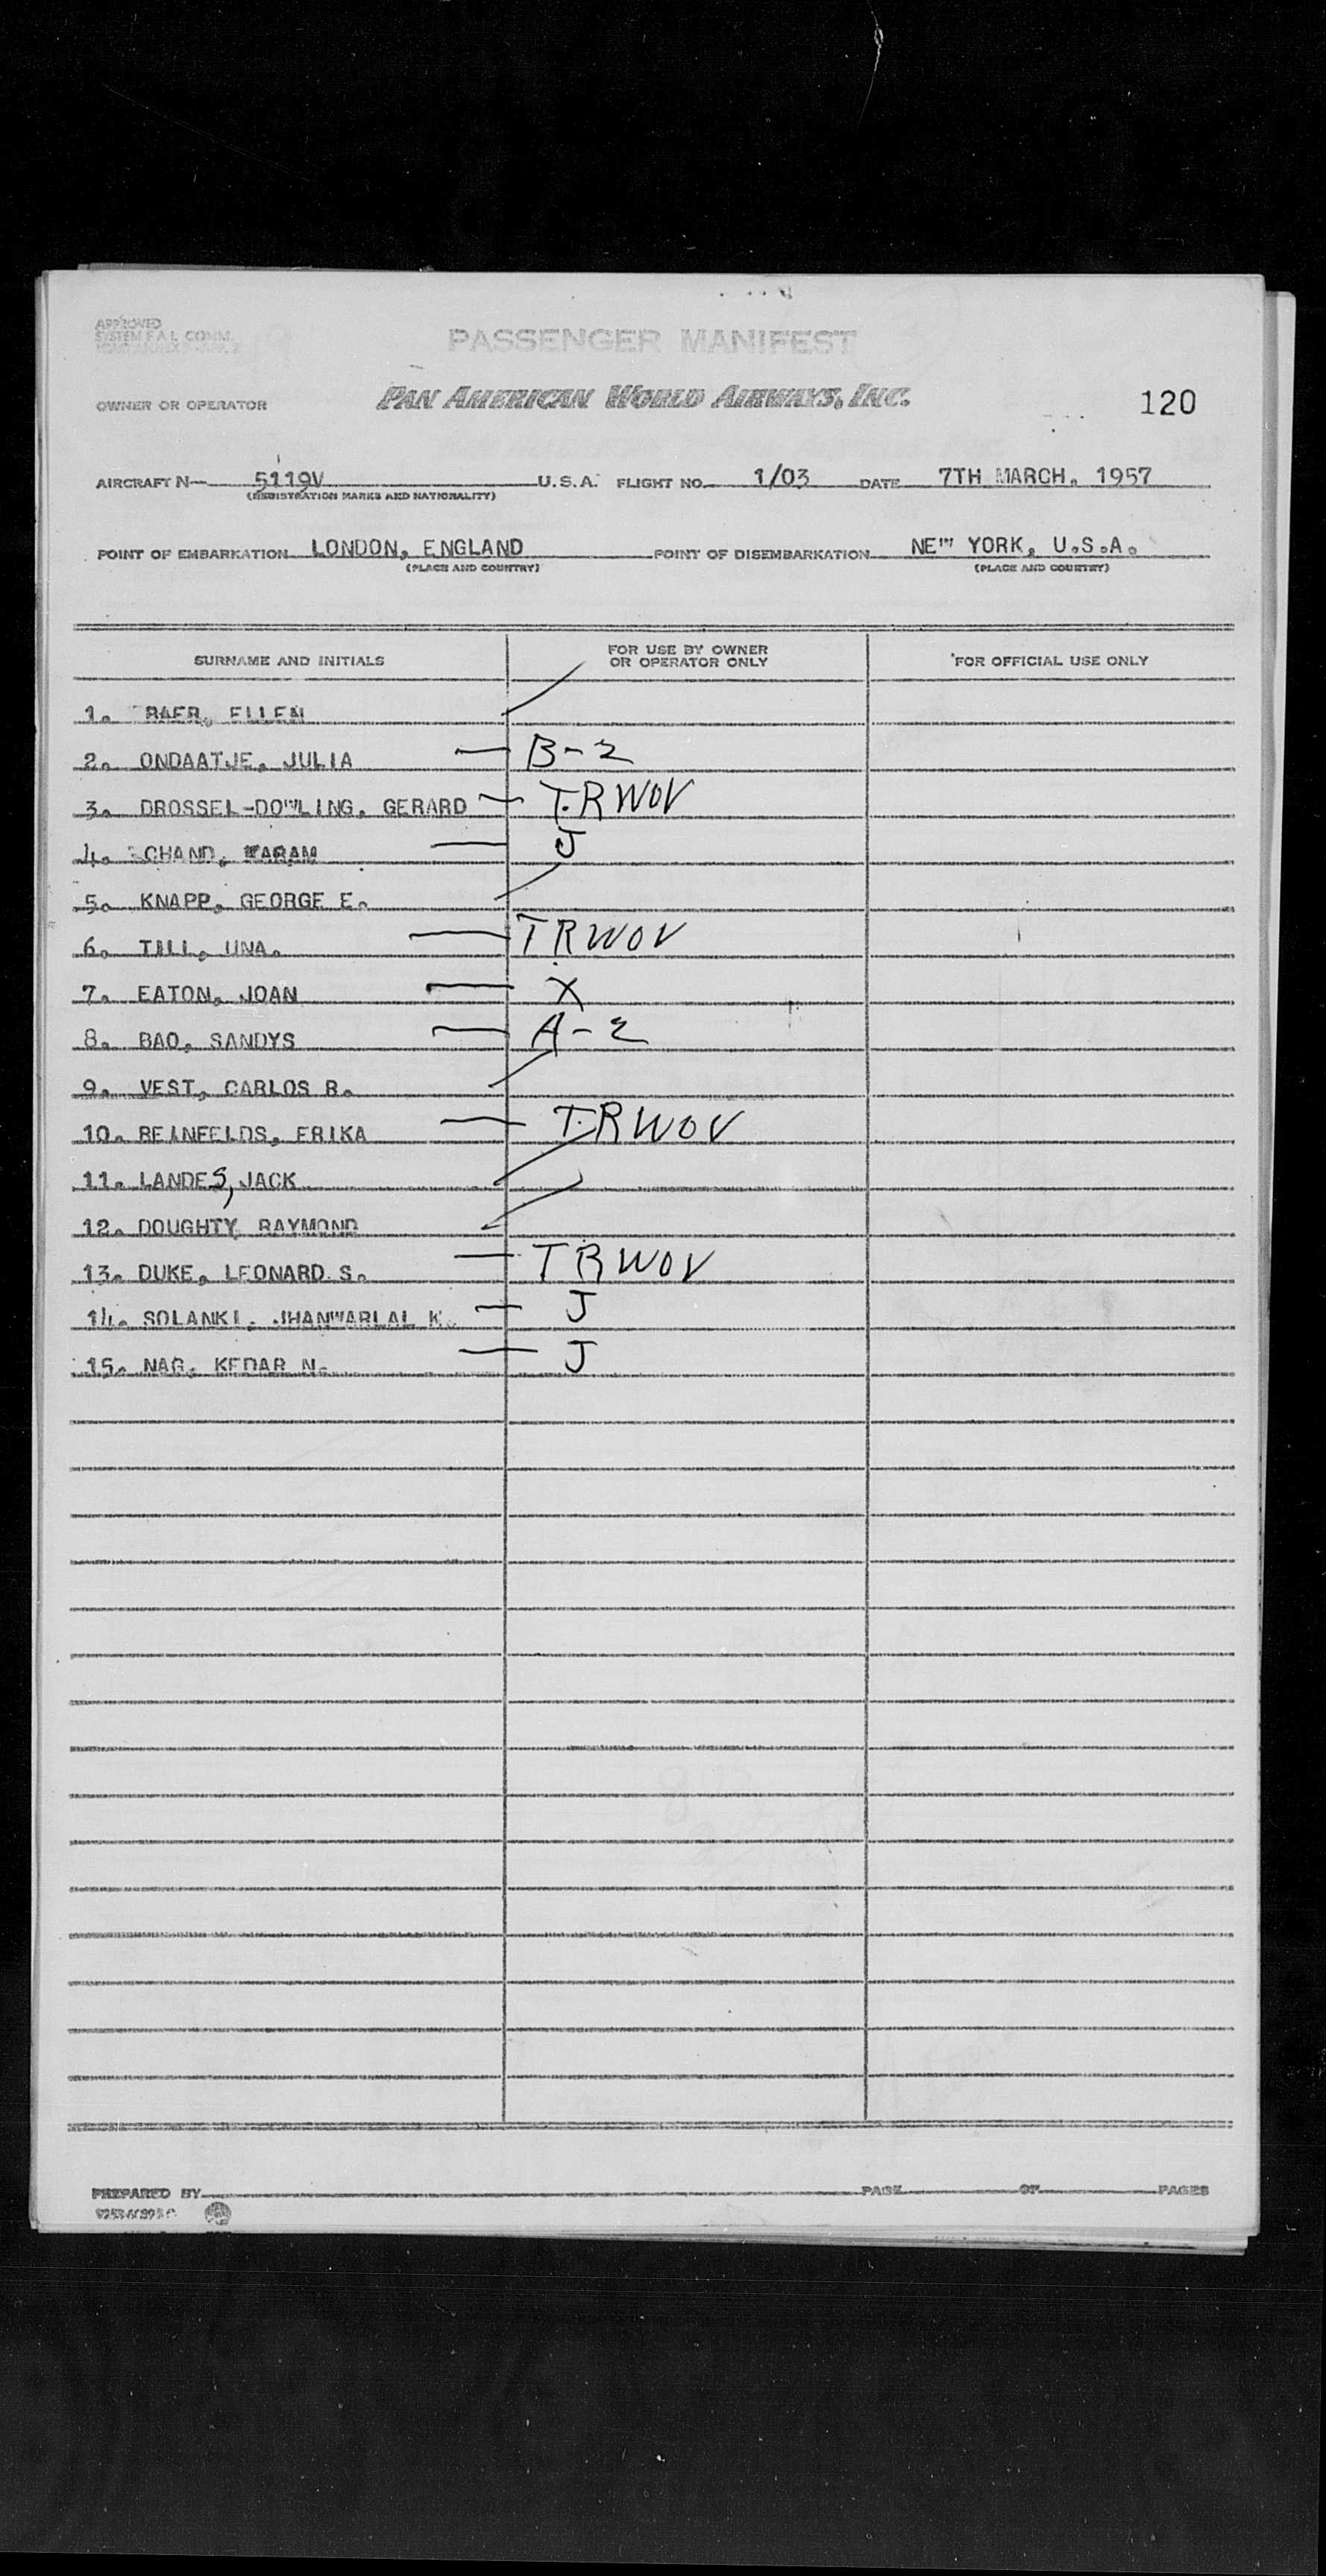 APPROVED
SYSTEM F.A.L. COMM.
PASSENGER MANIFEST
OWNER OR OPERATOR PAN AMERICAN WORLD AIRWAYS, INC. 120
AIRCRAFT N— 5119V U.S.A. FLIGHT NO. 1/03 DATE 7TH MARCH. 1957
(REGISTRATION MARKS AND NATIONALITY)
POINT OF EMBARKATION LONDON, ENGLAND POINT OF DISEMBARKATION NEW YORK, U.S.A.
(PLACE AND COUNTRY) (PLACE AND COUNTRY)
SURNAME AND INITIALS FOR USE BY OWNER OR OPERATOR ONLY FOR OFFICIAL USE ONLY
1. BAER, ELLEN
2. ONDAATJE, JULIA — B-2
3. DROSSEL-DOWLING, GERARD — T.RWOV
4. CHAND, KARAM — J
5. KNAPP, GEORGE E.
6. TILL, UNA. — TRWOV
7. EATON, JOAN — X
8. BAO, SANDYS — A-2
9. VEST, CARLOS B.
10. REINFELDS, ERIKA — T.RWOV
11. LANDES, JACK
12. DOUGHTY, RAYMOND
13. DUKE, LEONARD S. — TRWOV
14. SOLANKI, JHANWARLAL K. — J
15. NAG, KEDAR N. — J
PREPARED BY PAGE OF PAGES